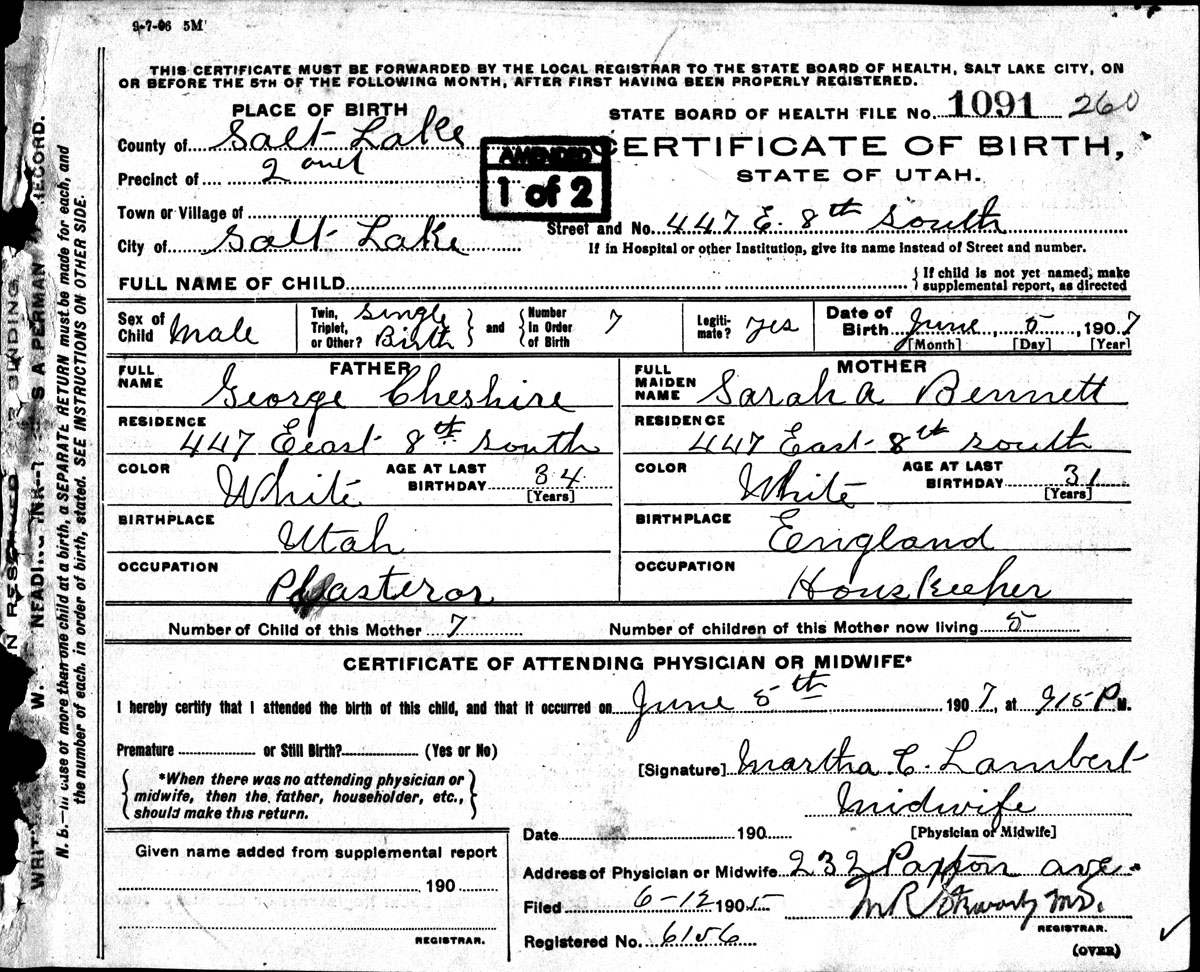 9-7-06 5M
THIS CERTIFICATE MUST BE FORWARDED BY THE LOCAL REGISTRAR TO THE STATE BOARD OF HEALTH, SALT LAKE CITY, ON
OR BEFORE THE 5TH OF THE FOLLOWING MONTH, AFTER FIRST HAVING BEEN PROPERLY REGISTERED.
PLACE OF BIRTH
STATE BOARD OF HEALTH FILE No. 1091 260
County of Salt Lake
CERTIFICATE OF BIRTH,
AMENDED
1 of 2
Precinct of 2 ond
STATE OF UTAH.
Town or Village of
Street and No. 447 E. 8th South
City of Salt Lake
If in Hospital or other Institution, give its name instead of Street and number.
FULL NAME OF CHILD
If child is not yet named, make
supplemental report, as directed
Sex of Child Male
Twin, Triplet, or Other? Single Birth and Number In Order of Birth 7
Legiti-mate? yes
Date of Birth June, 5, 1907
[Month] [Day] [Year]
FATHER
MOTHER
FULL NAME George Cheshire
FULL MAIDEN NAME Sarah A Bennett
RESIDENCE
447 Eeast 8th South
RESIDENCE
447 East 8th South
COLOR White
AGE AT LAST BIRTHDAY 34
[Years]
COLOR White
AGE AT LAST BIRTHDAY 31
[Years]
BIRTHPLACE
Utah
BIRTHPLACE
England
OCCUPATION
Plasteror
OCCUPATION
Houskeeher
Number of Child of this Mother 7
Number of children of this Mother now living 5
CERTIFICATE OF ATTENDING PHYSICIAN OR MIDWIFE*
I hereby certify that I attended the birth of this child, and that it occurred on June 5th 1907, at 915 P M.
Premature or Still Birth? (Yes or No)
[Signature] Martha C. Lambert
*When there was no attending physician or
midwife, then the father, householder, etc.,
should make this return.
Midwife
Date 190
[Physician or Midwife]
Given name added from supplemental report
Address of Physician or Midwife 232 Paxton ave.
190
Filed 6-12 1905
REGISTRAR.
REGISTRAR.
Registered No. 6156
(OVER)
N. B.—In case of more than one child at a birth, a SEPARATE RETURN must be made for each, and
the number of each, in order of birth, stated. SEE INSTRUCTIONS ON OTHER SIDE.